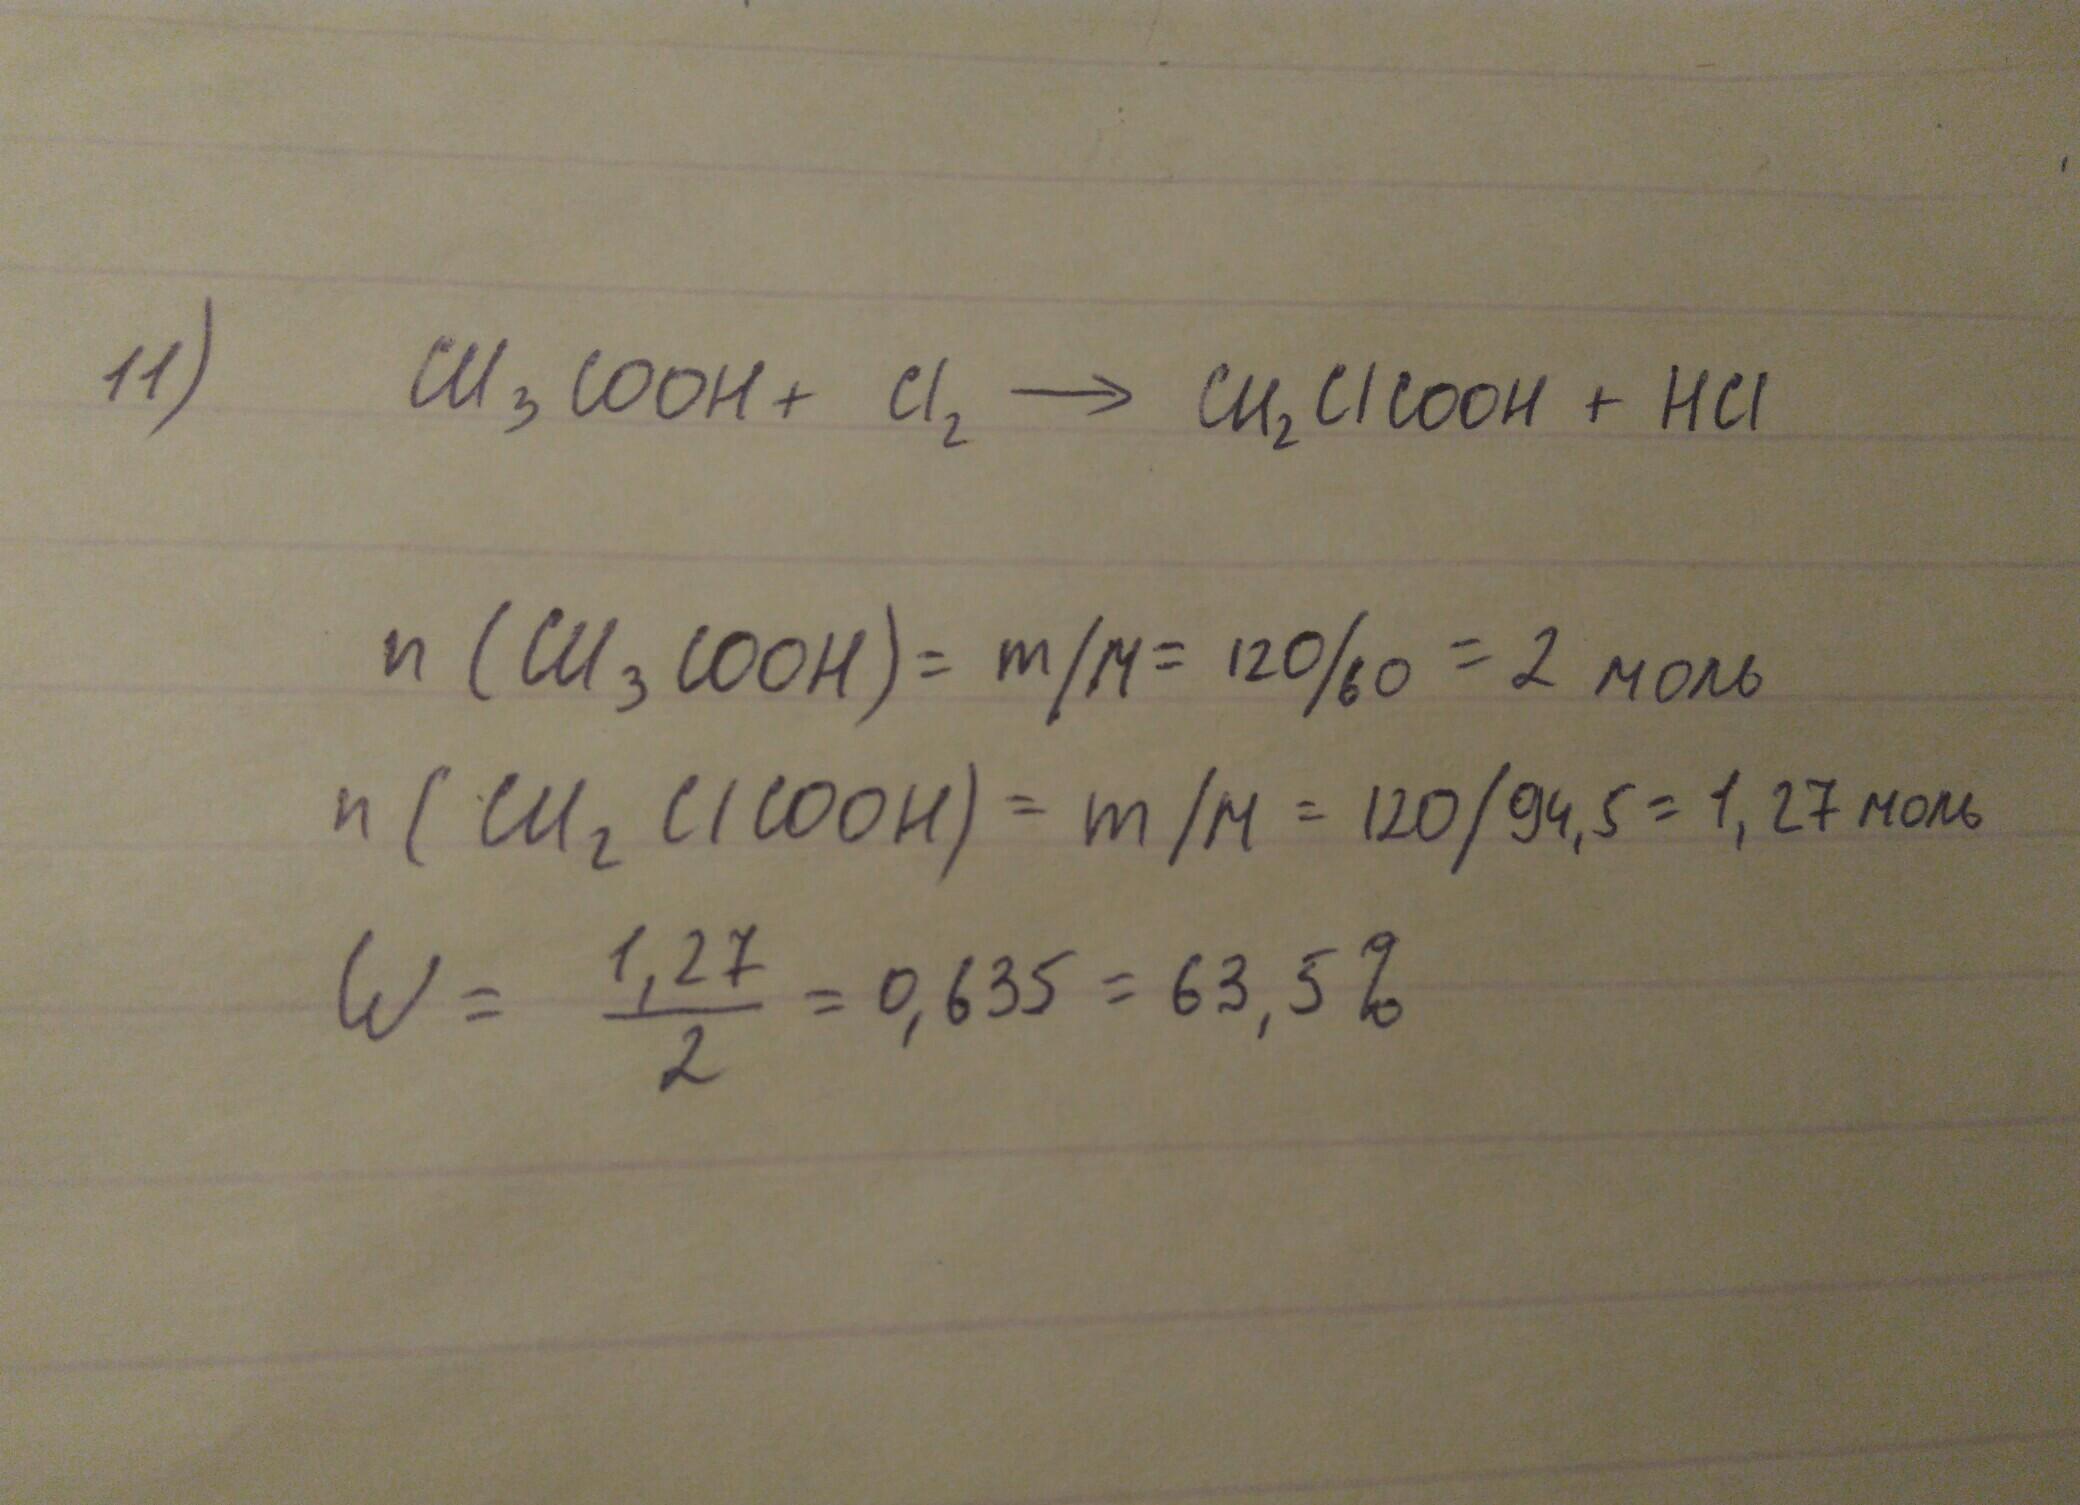 11) CH₃COOH + Cl₂ → CH₂ClCOOH + HCl
n (CH₃COOH) = m/M = 120/60 = 2 моль
n (CH₂ClCOOH) = m/M = 120/94,5 = 1,27 моль
W = 1,27/2 = 0,635 = 63,5%